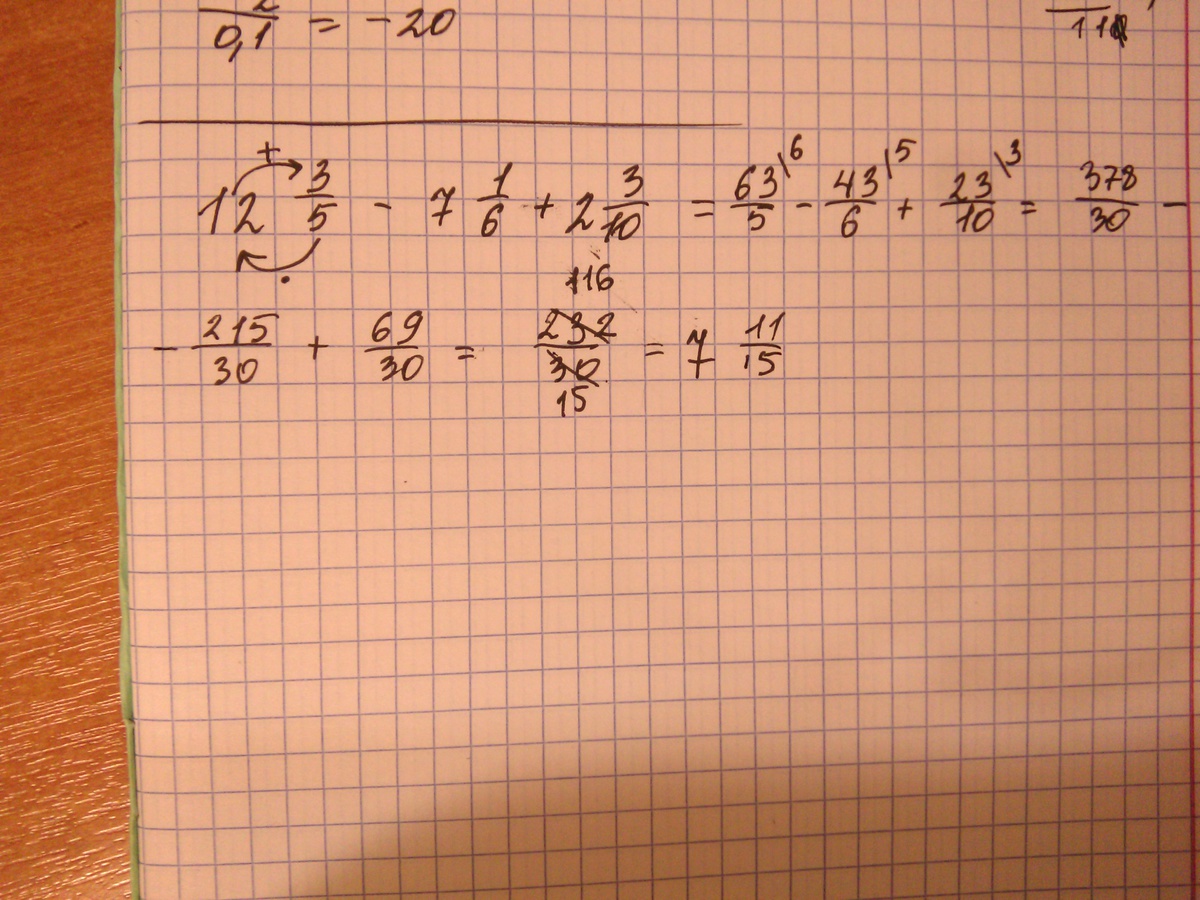 2/0,1 = -20
12 3/5 - 7 1/6 + 2 3/10 = 63/5 \6 - 43/6 \5 + 23/10 \3 = 378/30 -
- 215/30 + 69/30 = 232/30 116/15 = 7 11/15